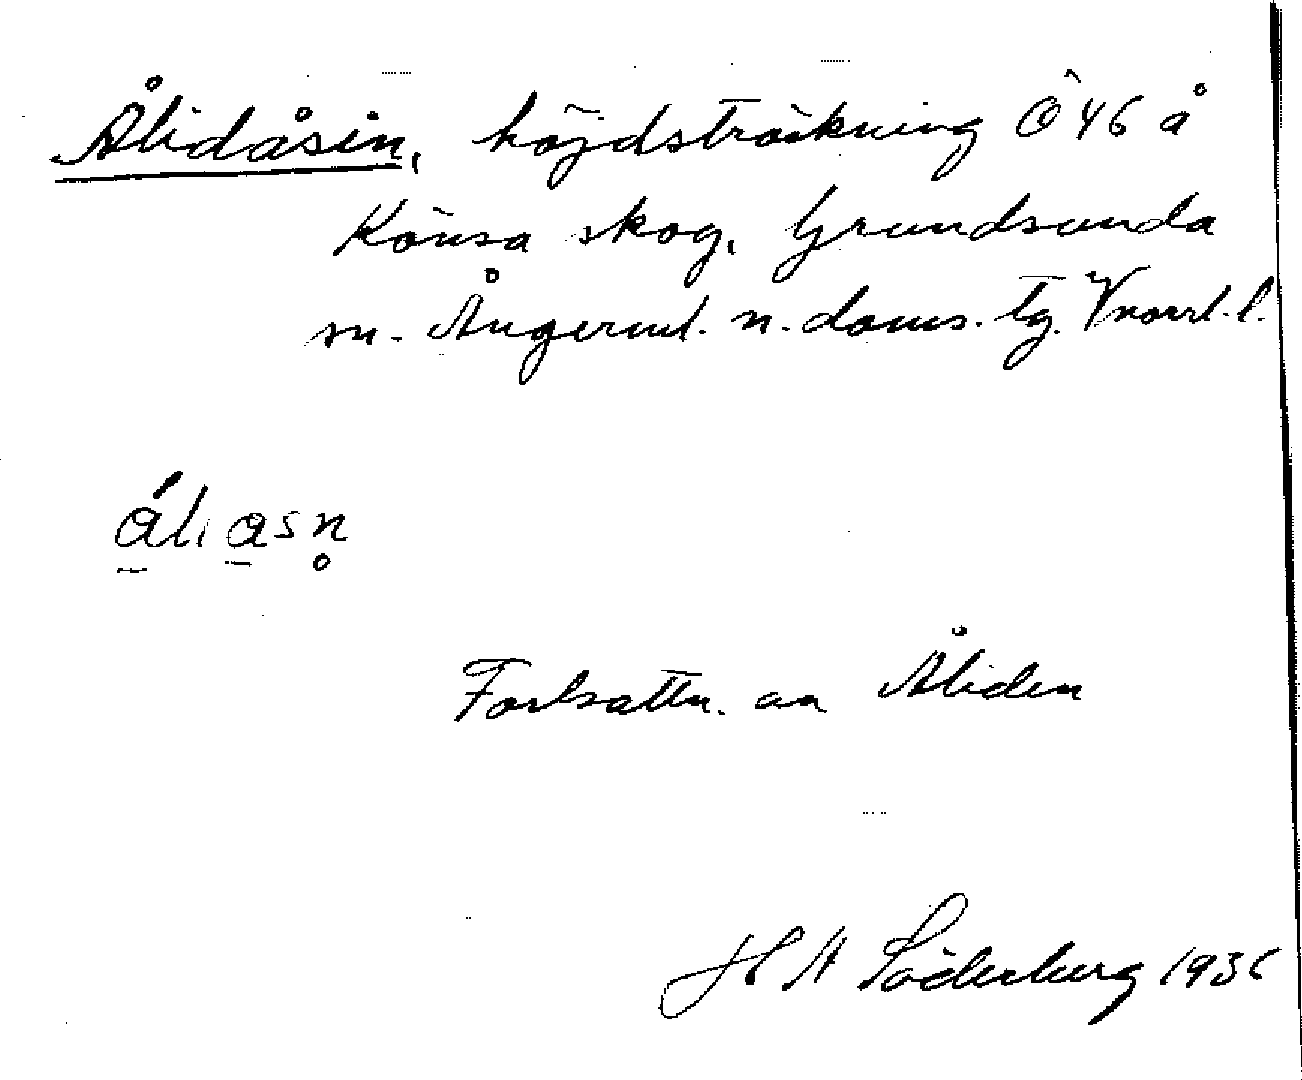 Ålidåsen, höjdsträckning Ö 46 å
Könsa skog, Grundsunda
sn. Ångerml. n. doms. tg. Vnorrl. l.
áliasn̥
Fortsättn. av Åliden
H A Söderberg 1936